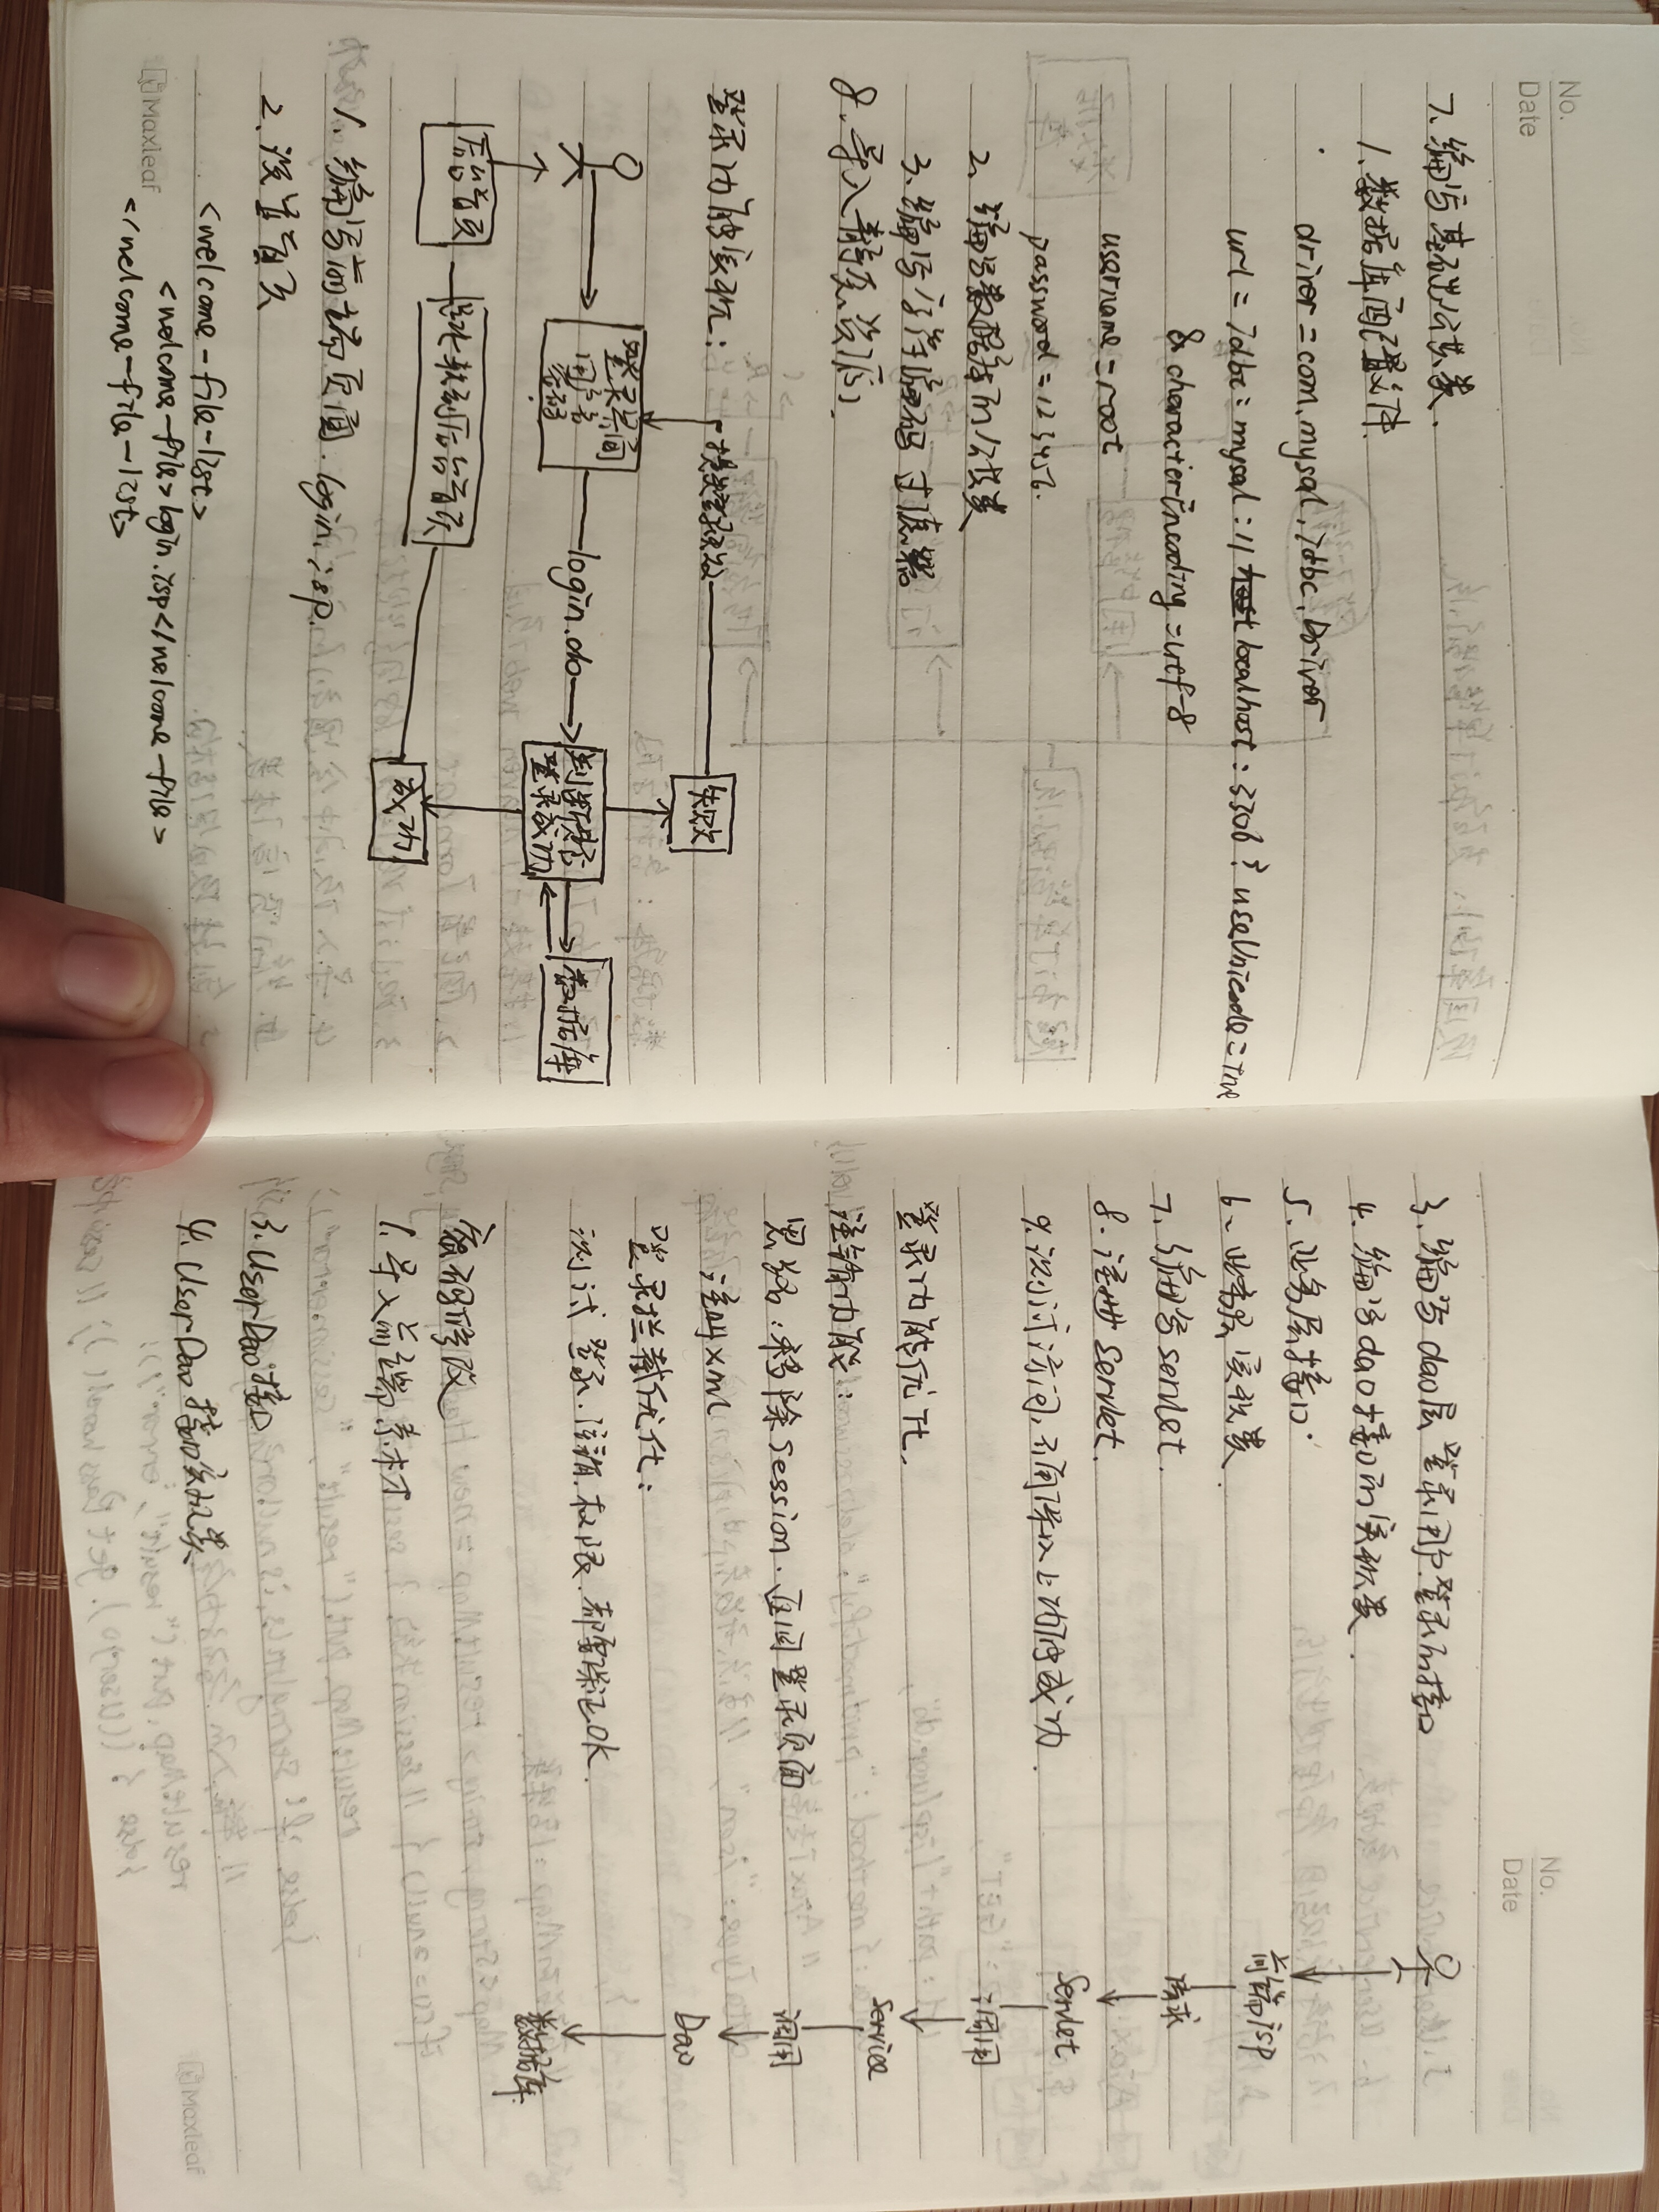 No.
Date
7. 编写基础公共类.
1. 数据库配置文件
driver = com.mysql.jdbc.Driver
url = jdbc:mysql://localhost:3306?useUnicode=true
&characterEncoding=utf-8
username=root
password=123456.
2. 编写数据库的公共类
3. 编写字符编码过滤器
8. 导入静态资源
登录功能实现:
提示登录失败
失败
登录界面
用户名
密码
login.do
判断是否
登录成功
数据库
后台首页
跳转到后台首页
成功
1. 编写前端页面. login.jsp.
2. 设置首页
<welcome-file-list>
<welcome-file>login.jsp</welcome-file>
</welcome-file-list>
Maxleaf
No.
Date
3. 编写dao层登录用户登录的接口
4. 编写dao接口的实现类
5. 业务层接口
6. 业务层实现类.
7. 编写servlet.
8. 注册servlet.
9. 测试访问,确保以上功能成功.
登录功能优化.
注销功能:
思路:移除Session.返回登录页面
注册xml
登录拦截优化:
测试 登录.注销.权限.都要保证OK.
密码修改
1. 导入前端素材
3. UserDao接口
4. UserDao接口实现类
前端jsp
请求
Servlet
调用
service
调用
Dao
数据库
Maxleaf